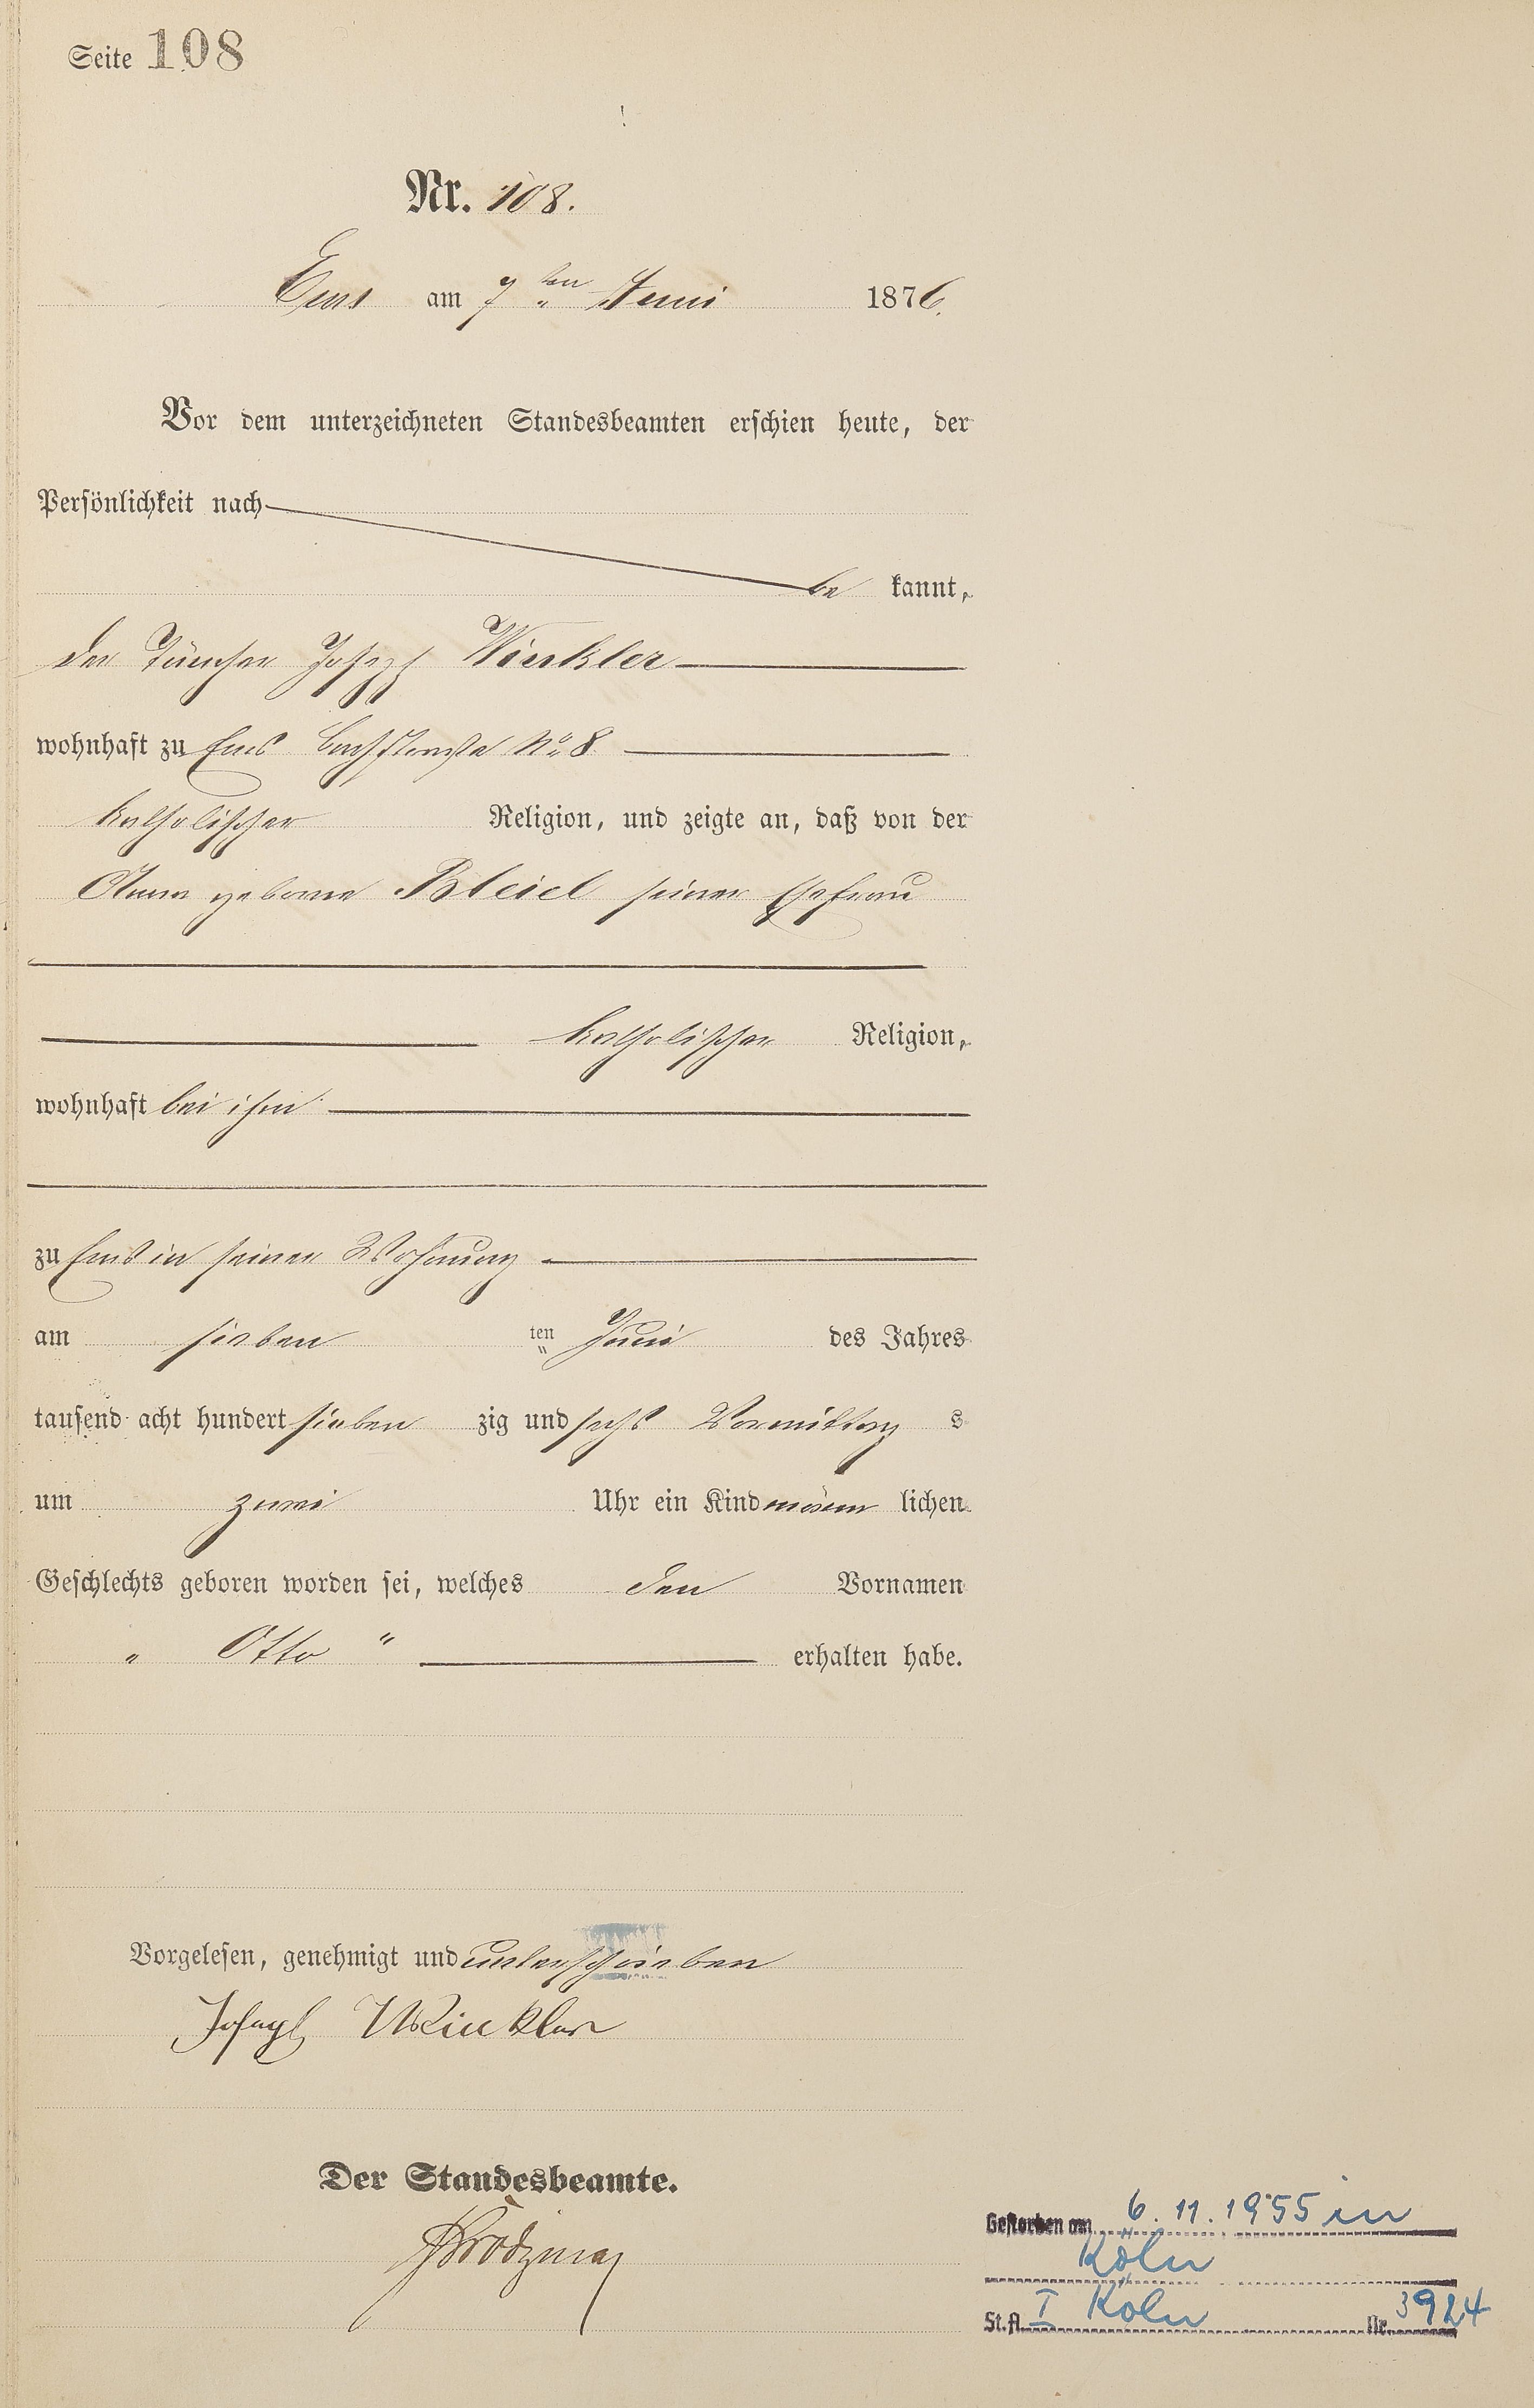 Seite 108
Nr. 108.
Ems am 7ten Juni 1876.
Vor dem unterzeichneten Standesbeamten erschien heute, der
Persönlichkeit nach
be kannt,
der Tüncher Joseph Winkler
wohnhaft zu Ems Bachstraße No 8
katholischer Religion, und zeigte an, daß von der
Anna geborne Bleiel seiner Ehefrau
katholischer Religion,
wohnhaft bei ihm
zu Ems in seiner Wohnung
am sieben ten Juni des Jahres
tausend acht hundert sieben zig und sechs Vormittag s
um zwei Uhr ein Kind männ lichen
Geschlechts geboren worden sei, welches den Vornamen
„ Otto “ erhalten habe.
Vorgelesen, genehmigt und unterschrieben
Joseph Winkler
Der Standesbeamte.
Gestorben am 6.11.1955 in
Köln
St.A. I Köln Nr. 3924